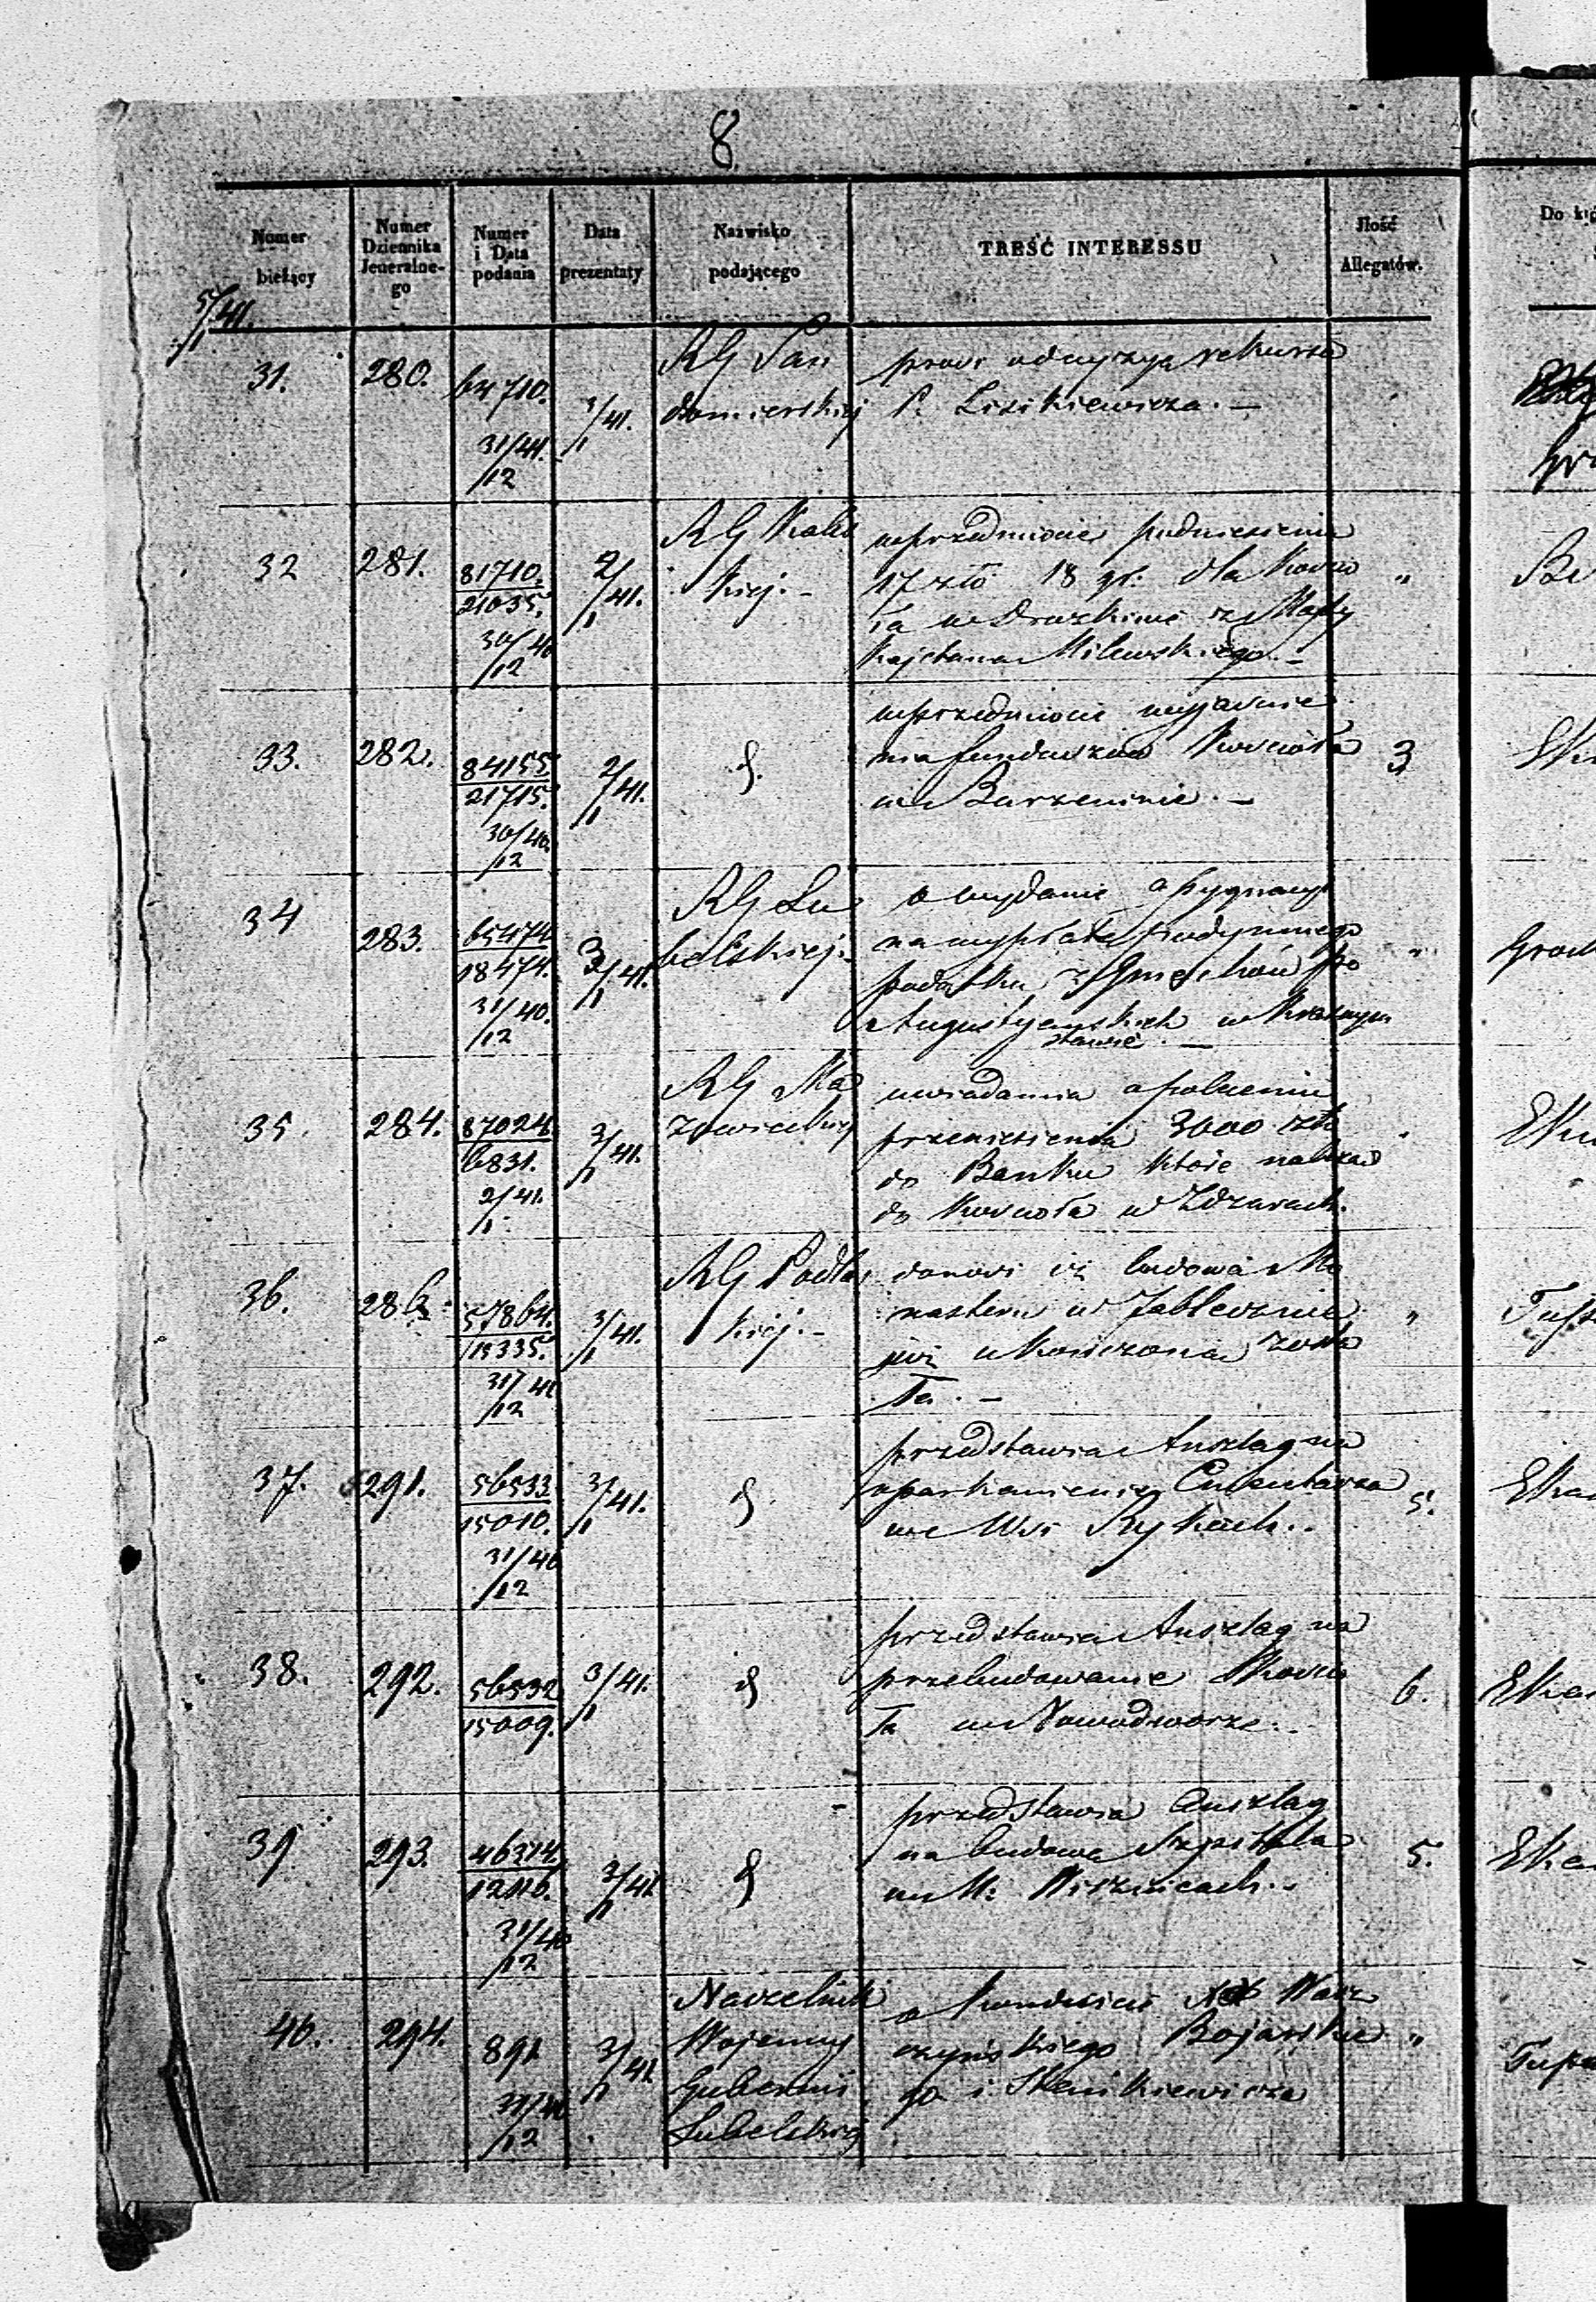 8
Numer
bieżący
Numer
Dziennika
Jeneralne-
go
Numer
i Data
podania
Data
prezentaty
Nazwisko
podającego
TREŚĆ INTERESSU
Ilość
Allegatów.
5/1 41.
31.
280.
64710.
31/12 41.
3/1 41.
RG San
domierskiej
prosi o decyzyą rekursu
P. Lisikiewicza. —
32
281.
81710.
21035.
30/12 40
2/1 41.
RG Kalis
kiej. -
wprzedmiocie podniesienia
17 złó 18 gr. dla Koscio
ła w Drużbinie z Massy
Kajetana Milewskiego. -
"
33.
282.
84155.
21715.
30/12 40.
2/1 41.
d.
wprzedmiocie wyjaśnie
nia funduszów Kościoła
w Burzeninie. —
3
34
283.
65474
18474.
31/12 40.
3/1 41.
RG Lu
belskiej. -
o wydanie assygnacyi
na wypłatę podymnego
podatku z Gmachów po
Augustyańskich w Krasnym
stawie. —
"
35.
284.
87024.
6831.
2/1 41.
3/1 41.
RG Ma
zowieckiej
uwiadamia o poleceniu
przeniesienia 3000 złp
do Banku które należą
do Kościoła w Zdżarach.
36.
286.
57864.
15335.
31/12 41
3/1 41.
RG Podlas
kiej. -
donosi iż budowa Mo
nasteru w Jabłecznie
już ukończoną zosta
ła. -
"
37.
291.
56533.
15010.
31/12 40
3/1 41.
d
przedstawia Anszlag na
oparkanienie Cmentarza
we Wsi Rykach. -
5.
38.
292.
56532
15009.
3/1 41.
d
przedstawia Anszlag na
przebudowanie Koscio
ła w Nowodworze. -
6.
39
293.
46314.
12116.
31/12 40
3/1 41
d
przedstawia Anszlag
na budowę Szpitala
w M: Wisznicach. -
5.
40.
294.
891
31/12 40
3/1 41
Naczelnik
Wojenny
Gubernii
Lubelskiej
o konduicie
Bojarskie
go i
"